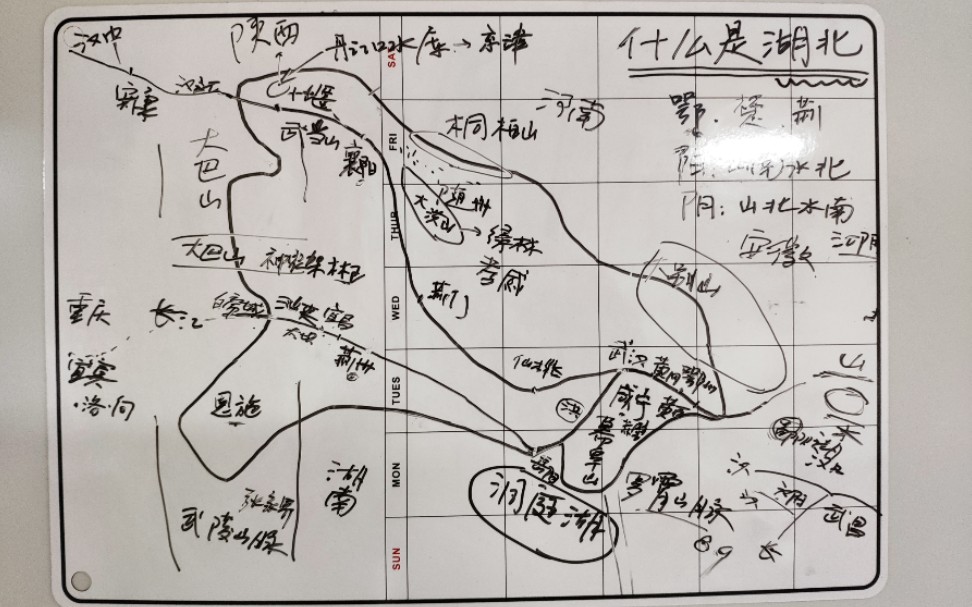 什么是湖北
汉中
陕西
丹江口水库→京津
SA
安康
汉江
十堰
河南
鄂.楚.荆
武当山
桐柏山
襄阳
FRI
大巴山
随州
阳:山南水北
大洪山
→绿林
阴:山北水南
THUR
孝感
安徽
江阴
大巴山
神农架林区
大别山
荆门
WED
重庆
长江
白帝城
三峡
宜昌
大坝
荆州
仙桃
武汉
黄冈
鄂州
宜宾
TUES
恩施
洪
咸宁
黄石
幕阜山
岳阳
湖南
MON
洞庭湖
罗霄山脉
汉
汉阳
武昌
张家界
武陵山脉
长
SUN